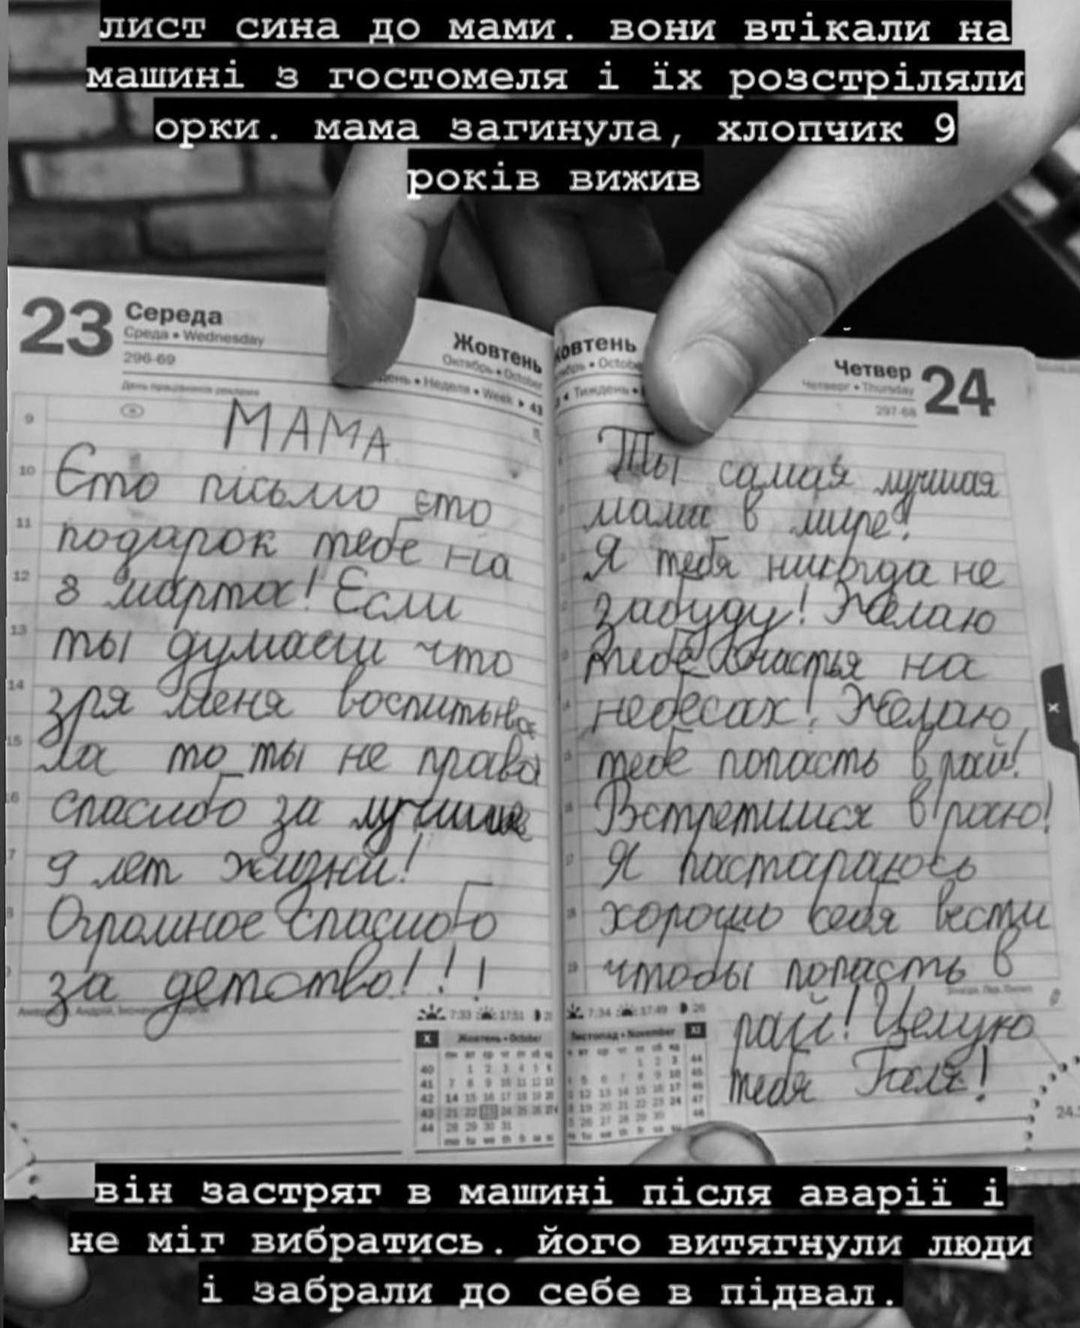 лист сина до мами. вони втікали на
машині з гостомеля і їх розстріляли
орки. мама загинула, хлопчик 9
років вижив
23 Середа
Среда • Wednesday
296-69
Жовтень
Октябрь • October
Неделя • Week ▸ 43
МАМА
Єто письмо єто
подарок тебе на
8 марта! Если
ты думаеш что
зря меня воспитыва
ла то ты не права
спасибо за лучшие
9 лет жизни!
Огромное спасибо
за детство!!!
7:33 17:51
Жовтень • October
Жовтень
Четвер 24
Четверг • Thursday
297-68
Ты самая лучшая
мама в мире!
Я тебя никогда не
забуду! Желаю
тебе счастья на
небесах! Желаю
тебе попасть в рай!
Встретимся в раю!
Я пастараюсь
хорошо себя вести
чтобы попасть в
рай! Целую
тебя
7:34 17:49
Листопад • November XI
він застряг в машині після аварії і
не міг вибратись. його витягнули люди
і забрали до себе в підвал.